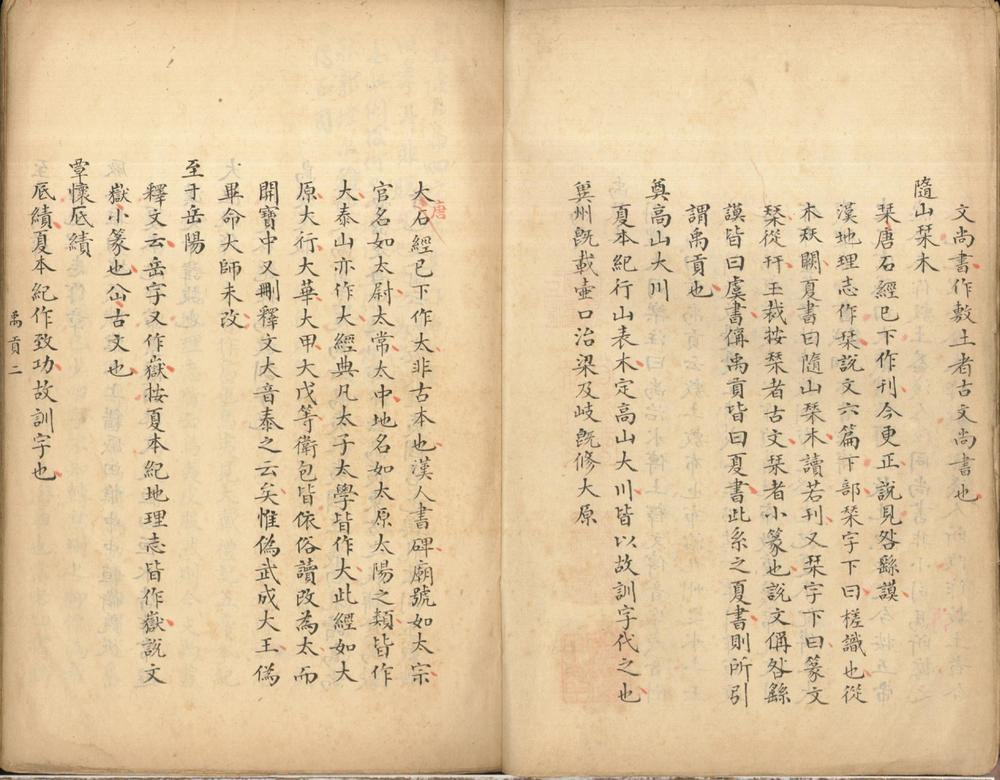 文尚書作敷土者古文尚書也
隨山栞木
栞唐石經已下作刊今更正說見咎繇謨
漢地理志作栞說文六篇下部栞字下曰槎識也從
木㺳闕夏書曰隨山栞木讀若刊又栞字下曰篆文
栞從幵王裁按栞者古文栞者小篆也說文偁咎繇
謨皆曰虞書偁禹貢皆曰夏書此系之夏書則所引
謂禹貢也
奠高山大川
夏本紀行山表木定高山大川皆以故訓字代之也
兾州旣載壷口治梁及岐旣修大原
唐
大石經已下作太非古本也漢人書碑廟號如太宗
官名如太尉太常太中地名如太原太陽之類皆作
大泰山亦作大經典凡太子太學皆作大此經如大
原大行大華大甲大戊等衛包皆依俗讀改為太而
開寶中又刪釋文大音泰之云矣惟偽武成大王偽
畢命大師未改
至于岳陽
釋文云岳字又作嶽按夏本紀地理志皆作嶽說文
嶽小篆也㞻古文也
覃懷厎績
厎績夏本紀作致功故訓字也
禹貢二